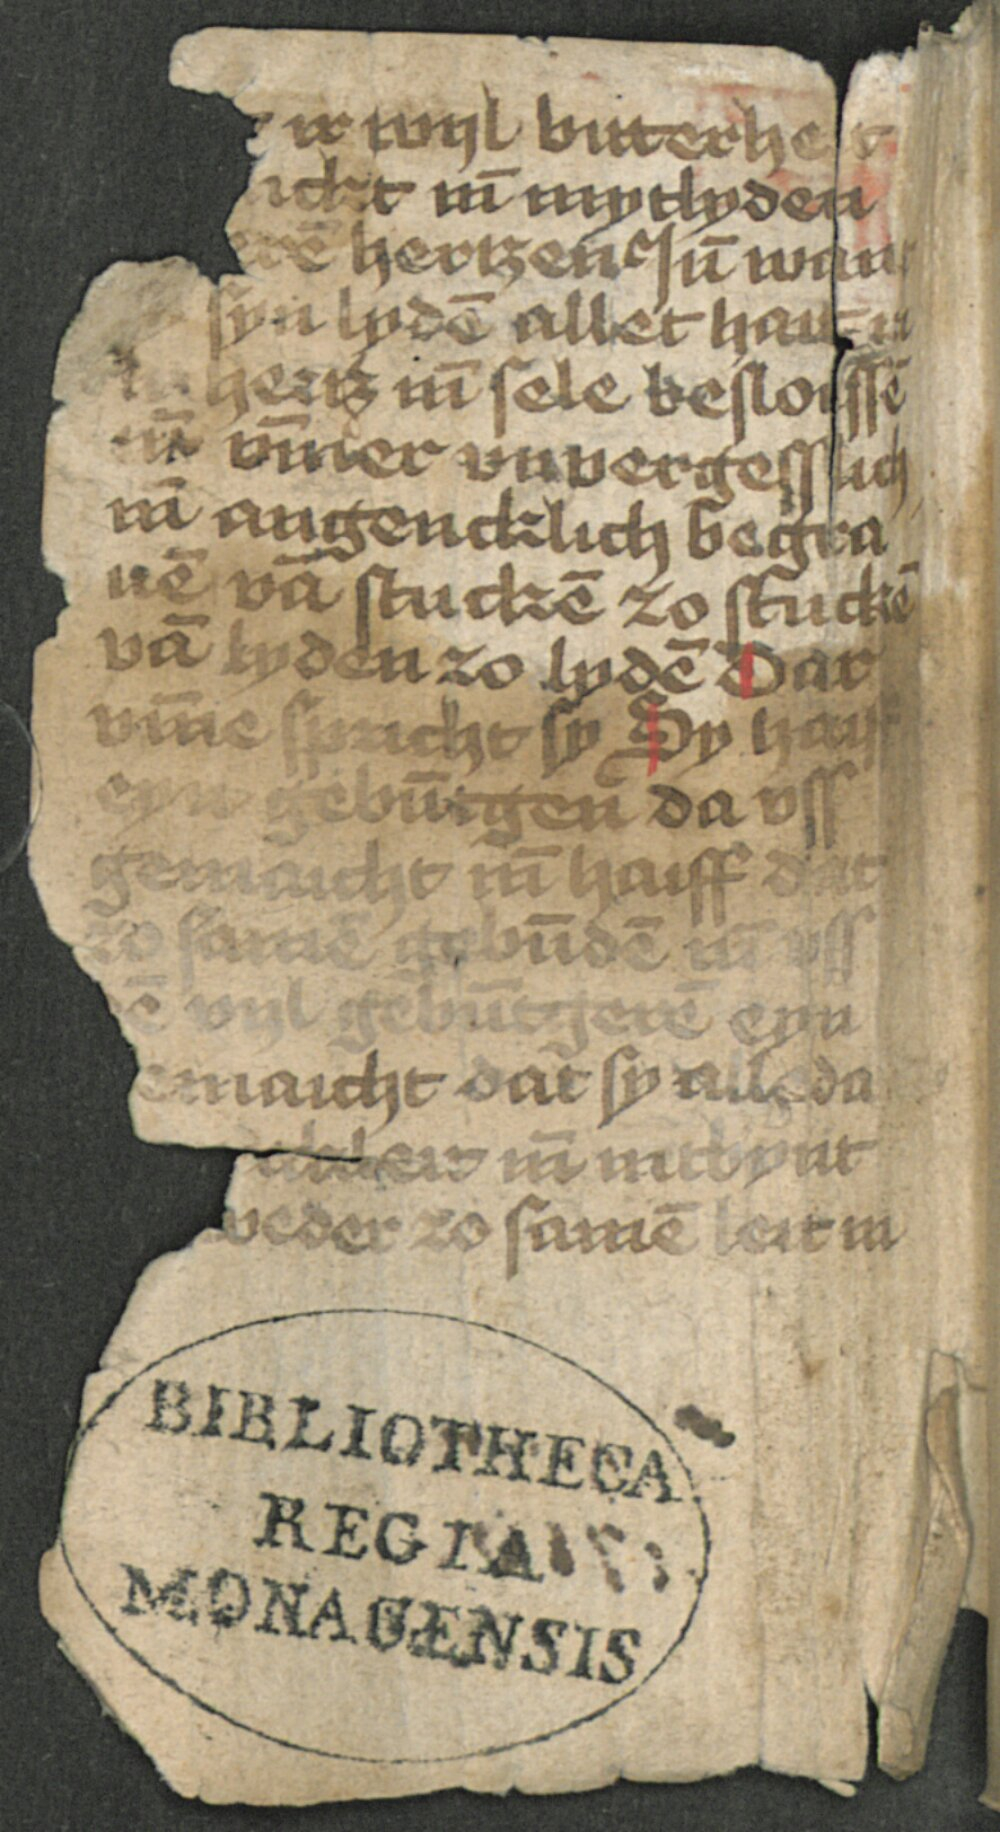 ir vvyl bitterheit
nicht vn̄ mytlyden
erē hertzen Jn̄ want
syn lydē allet hait in
hertz vn̄ sele beslossē
vn̄ vm̄er vnvergesslich
vn̄ augencklich begra
uē vā stuckē zo stuckē
vā lyden zo lydē Dar
vm̄e spricht sy Sy hait
eyn gebūtgen da vss
gemaicht vn̄ haiff dat
zo samē gebūdē vn̄ vss
vyl gebūtgerē eyn
emaicht dat sy alle da
vn̄ intbynt
weder zo samē leit in
BIBLIOTHECA
REGIA
MONACENSIS